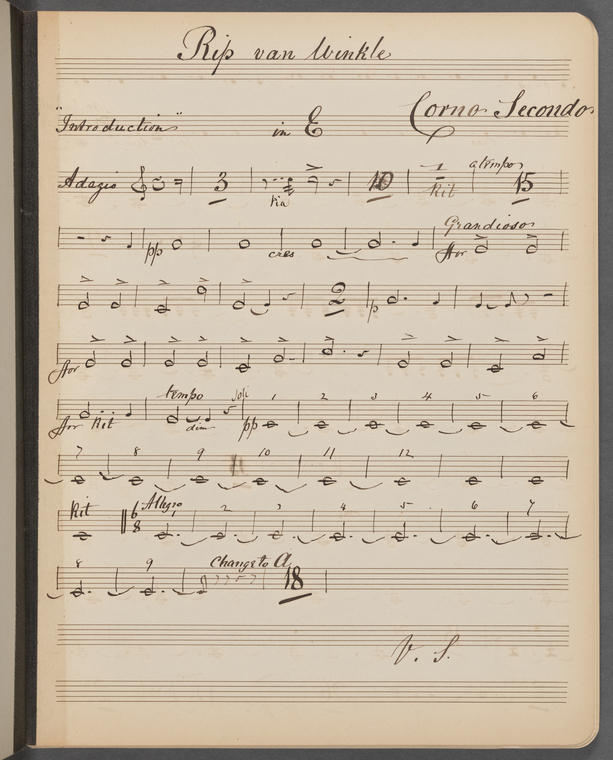 Rip van Winkle
"Introduction" in E Corno Secondo
Adagio 3 10 1 Rit a tempo 15
pp cres Grandioso ffor
2 p
ffor
ffor Rit tempo dim pp 1 2 3 4 5 6
7 8 9 10 11 12
Rit 6/8 Allegro 2 3 4 5 6 7
8 9 Change to A 18
V. S.